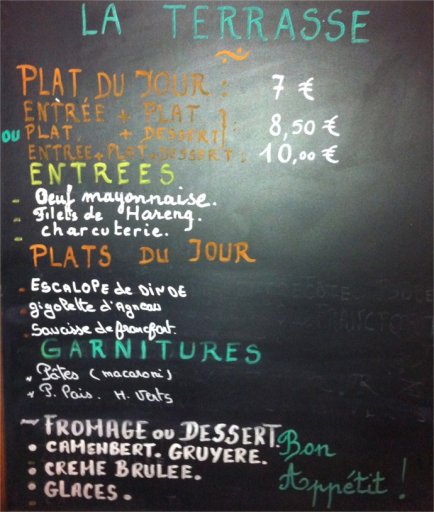 LA TERRASSE
PLAT DU JOUR : 7 €
ENTRÉE + PLAT
OU PLAT + DESSERT } 8,50 €
ENTREE+PLAT+DESSERT : 10,00 €
ENTREES
- Oeuf mayonnaise.
- Filets de Hareng.
- charcuterie.
PLATS DU JOUR
- ESCALOPE de DINDE
- gigolette d'Agneau
- Saucisse de francfort.
GARNITURES
* Pâtes (macaronis)
* P. Pois. H. Verts
~ FROMAGE OU DESSERT.
• CAMENBERT. GRUYERE.
• CREME BRULEE.
• GLACES.
Bon
Appétit !